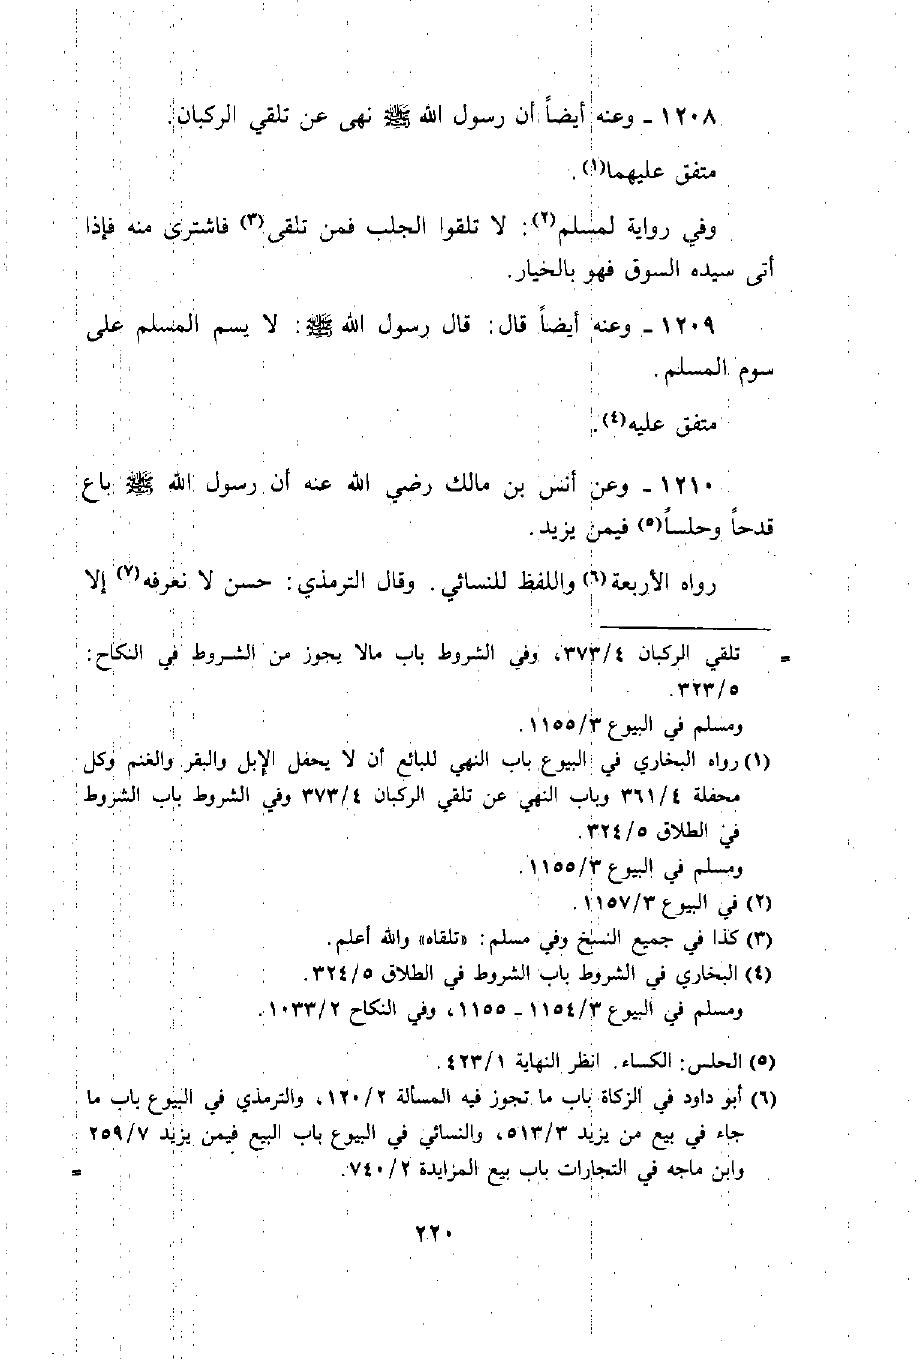 ١٢٠٨ ـ وعنه أيضاً أن رسول الله ﷺ نهى عن تلقي الركبان.
متفق عليهما(١).
وفي رواية لمسلم(٢): لا تلقوا الجلب فمن تلقى(٣) فاشترى منه فإذا
أتى سيده السوق فهو بالخيار.
١٢٠٩ ـ وعنه أيضاً قال: قال رسول الله ﷺ: لا يسم المسلم على
سوم المسلم.
متفق عليه(٤).
١٢١٠ ـ وعن أنس بن مالك رضي الله عنه أن رسول الله ﷺ باع
قدحاً وحلساً(٥) فيمن يزيد.
رواه الأربعة(٦) واللفظ للنسائي. وقال الترمذي: حسن لا نعرفه(٧) إلا
= تلقي الركبان ٣٧٣/٤، وفي الشروط باب مالا يجوز من الشروط في النكاح:
٣٢٣/٥.
ومسلم في البيوع ١١٥٥/٣.
(١) رواه البخاري في البيوع باب النهي للبائع أن لا يحفل الإبل والبقر والغنم وكل
محفلة ٣٦١/٤ وباب النهي عن تلقي الركبان ٣٧٣/٤ وفي الشروط باب الشروط
في الطلاق ٣٢٤/٥.
ومسلم في البيوع ١١٥٥/٣.
(٢) في البيوع ١١٥٧/٣.
(٣) كذا في جميع النسخ وفي مسلم: «تلقاه» والله أعلم.
(٤) البخاري في الشروط باب الشروط في الطلاق ٣٢٤/٥.
ومسلم في البيوع ١١٥٤/٣ ـ ١١٥٥، وفي النكاح ١٠٣٣/٢.
(٥) الحلس: الكساء. انظر النهاية ٤٢٣/١.
(٦) أبو داود في الزكاة باب ما تجوز فيه المسألة ١٢٠/٢، والترمذي في البيوع باب ما
جاء في بيع من يزيد ٥١٣/٣، والنسائي في البيوع باب البيع فيمن يزيد ٢٥٩/٧
وابن ماجه في التجارات باب بيع المزايدة ٧٤٠/٢. =
٢٢٠